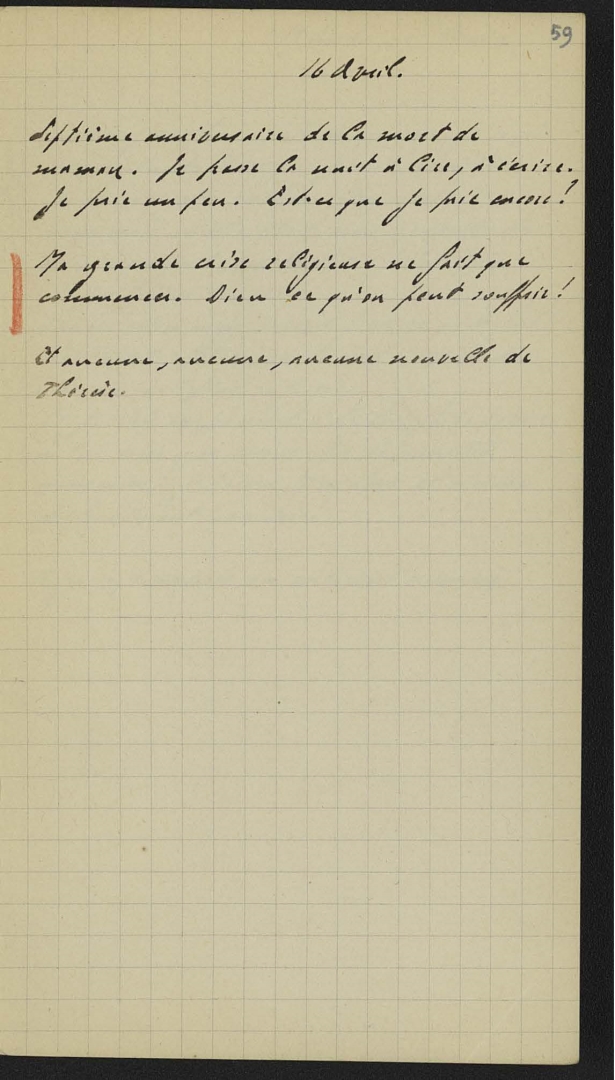 59
16 Avril.
Septième anniversaire de la mort de
maman. Je passe la nuit à lire, à écrire.
Je prie un peu. Est-ce que je prie encore ?
Ma grande crise religieuse ne fait que
commencer. Dieu ce qu'on peut souffrir !
Et aucune, aucune, aucune nouvelle de
Thérèse.